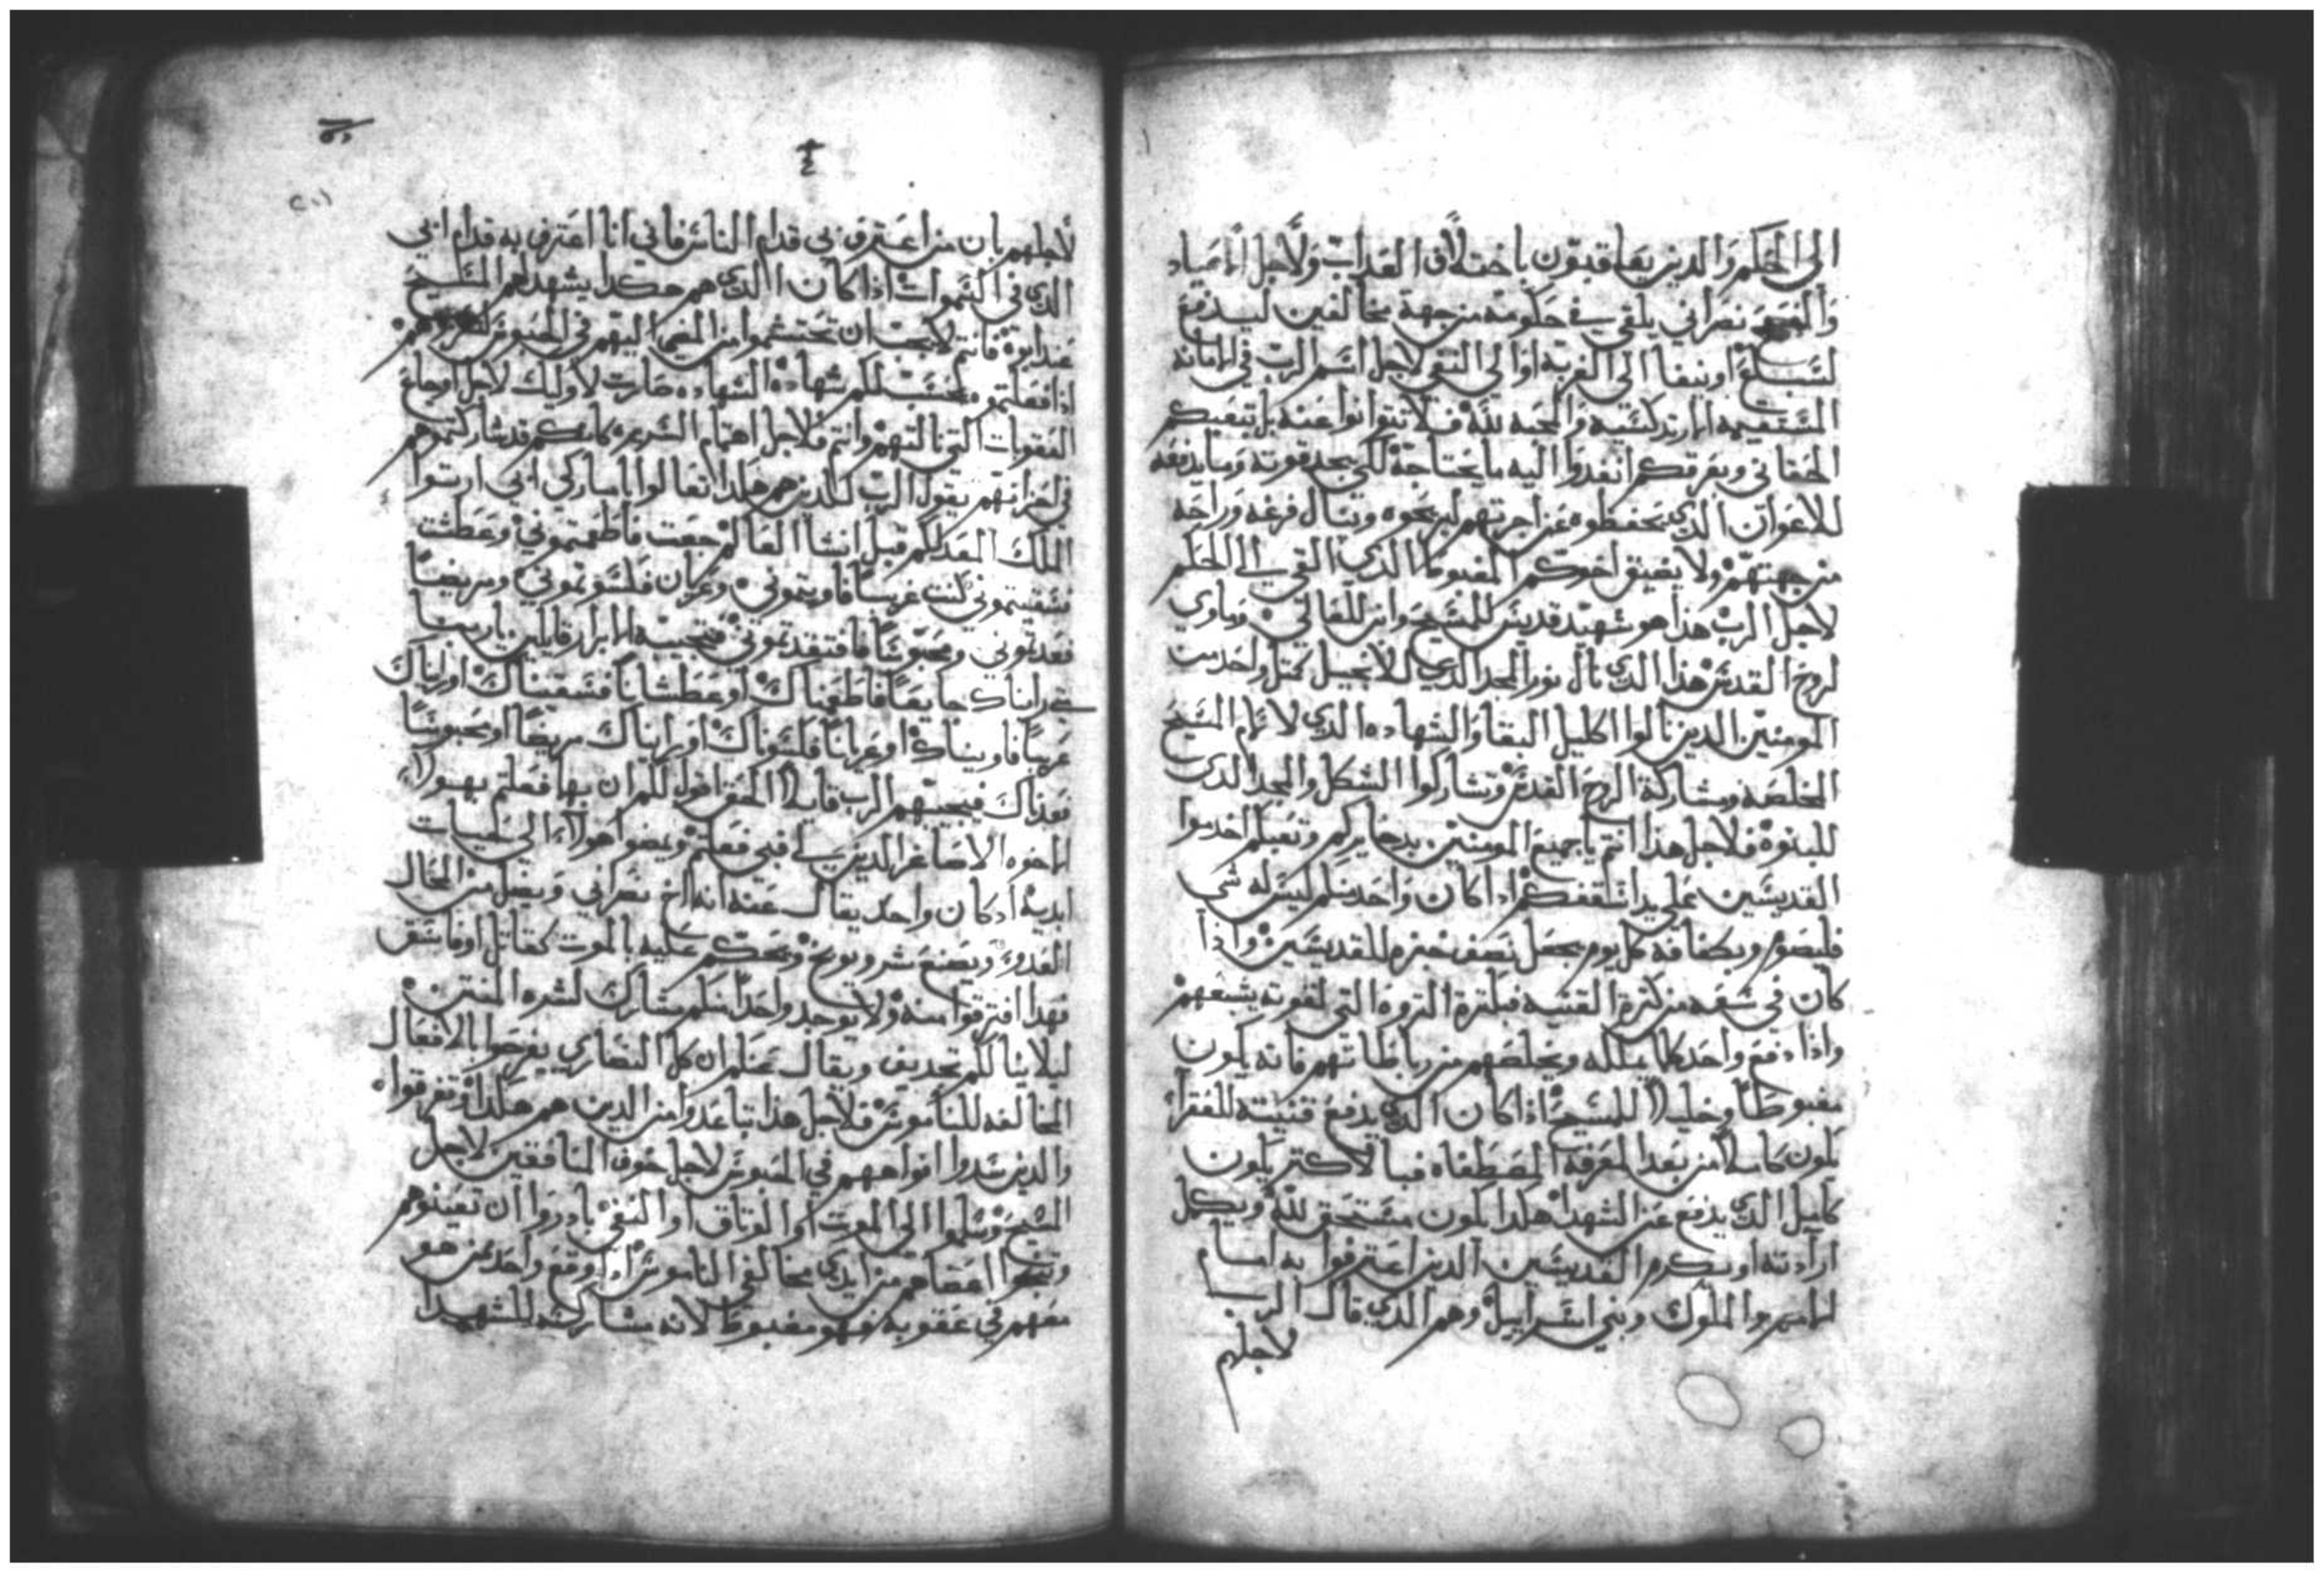 الى الحكم والدين يعاقبون باختلاف العداب ولاجل الاعياد
نصراني يلقي في حكومة من جهة مخالفين ليدفع
او ينفا الى الغربة او الى النفي لاجل اسم الرب في الامانة
المستقيمة والمحبة لله فلا تتوانوا عنه بل بتعبكم
وبعرقكم انفدوا اليه ما يحتاجه لكي يجد قوته وما يدفعه
للاعوان الدي يحفظوه عن اجرتهم لينجوه وينال فرغه وراحه
من جهتهم ولا يضيق اخوكم المغبوط الدي القي الى الحكم
لاجل الرب هدا هو شهيد قديس للمسيح وابن للعالي وماوي
لروح القدس هدا الدي نال نور المجد الدي للانجيل كمتل واحد من
المومنين الدين نالوا اكليل البقا والشهاده الدي لالام المسيح
المخلصه ومشاركة الروح القدس وتشاركوا الشكل والمجد الدي
للبنوة فلاجل هدا انتم يا جميع المومنين بدخايركم وتعبكم اخدموا
القديسين على يد اسقفكم ادا كان واحد منكم ليس له شي
فليصوم وبكفافه كل يوم يجعل نصف خبزه للقديسين وادا
كان في سعه من كترة القنيه فبكترة التروه التي لقوته يشبعهم
وادا دفع واحد كلما يملكه ويخلصهم من رباطاتهم فانه يكون
مغبوطا وخليلا للمسيح ادا كان الدي يدفع قنيته للفقرا
يكون كاملا من بعد المعرفة المصطفاه فبالاكتر يكون
كاملا الدي يدفع عن الشهدا هكدا يكون مستحق لله ويكمل
ارادته اد يكرم القديسين الدين اعترفوا به امام
الامم والملوك وبني اسراييل وهم الدي قال الرب
لاجلهم
لاجلهم بان من اعترف بي قدام الناس فاني انا اعترف به قدام ابي
الدي في السموات ادا كان الدي هم هكدا يشهد لهم المسيح
عند ابوه فانتم لا يجب ان تحتشموا من المضي اليهم في الحبوس
ادا فعلتموه يحسب لكم شهاده الشهاده صارت لاوليك لاجل اوجاع
العقوبات التي نالتهم وانتم فلاجل اهتمام السريره كانكم قد شاركتموهم
في احزانهم يقول الرب للدين هم هكدا تعالوا يا مباركي ابي ارتوا
الملك المعد لكم قبل انشا العالم جعت فاطعمتموني وعطشت
فسقيتموني كنت غريبا فاويتموني وعريان فكسوتموني ومريضا
فعدتموني ومحبوسا فافتقدتموني فتجيبه الابرار قايلين يا ربنا
متى رايناك جايعا فاطعمناك او عطشانا فسقيناك او رايناك
غريبا فاويناك او عريانا فكسوناك او رايناك مريضا او محبوسا
فعدناك فيجيبهم الرب قايلا الحق اقول لكم ان بما فعلتم بهولا
الاخوه الاصاغر الدين لي فبي فعلتم ويمضوا هولا الى حيات
ابدية اد كان واحد يقال عنه انه اخ نصراني ويضل من المحال
العدو ويصنع شر ويوبخ ويحكم عليه بالموت كقاتل او فاسق
فهدا افترقوا منه ولا يوجد واحدا منكم مشارك لشره المنتن
ليلا ينالكم تجديف ويقال عنكم ان كل النصارى يفرحوا بالافعال
المخالفه للناموس فلاجل هدا تباعدوا من الدين هم هكدا وتفرقوا
والدين سدوا افواههم في الحبوس لاجل خوف المنافقين لاجل
المسيح وسلموا الى الموت او الوتاق او النفي بادروا ان تعينوهم
وتنجوا اعضاهم من ايدي مخالفي الناموس ادا وقع واحد ممن هو
معهم في عقوبه فهو مغبوط لانه مشاركه للشهيدا